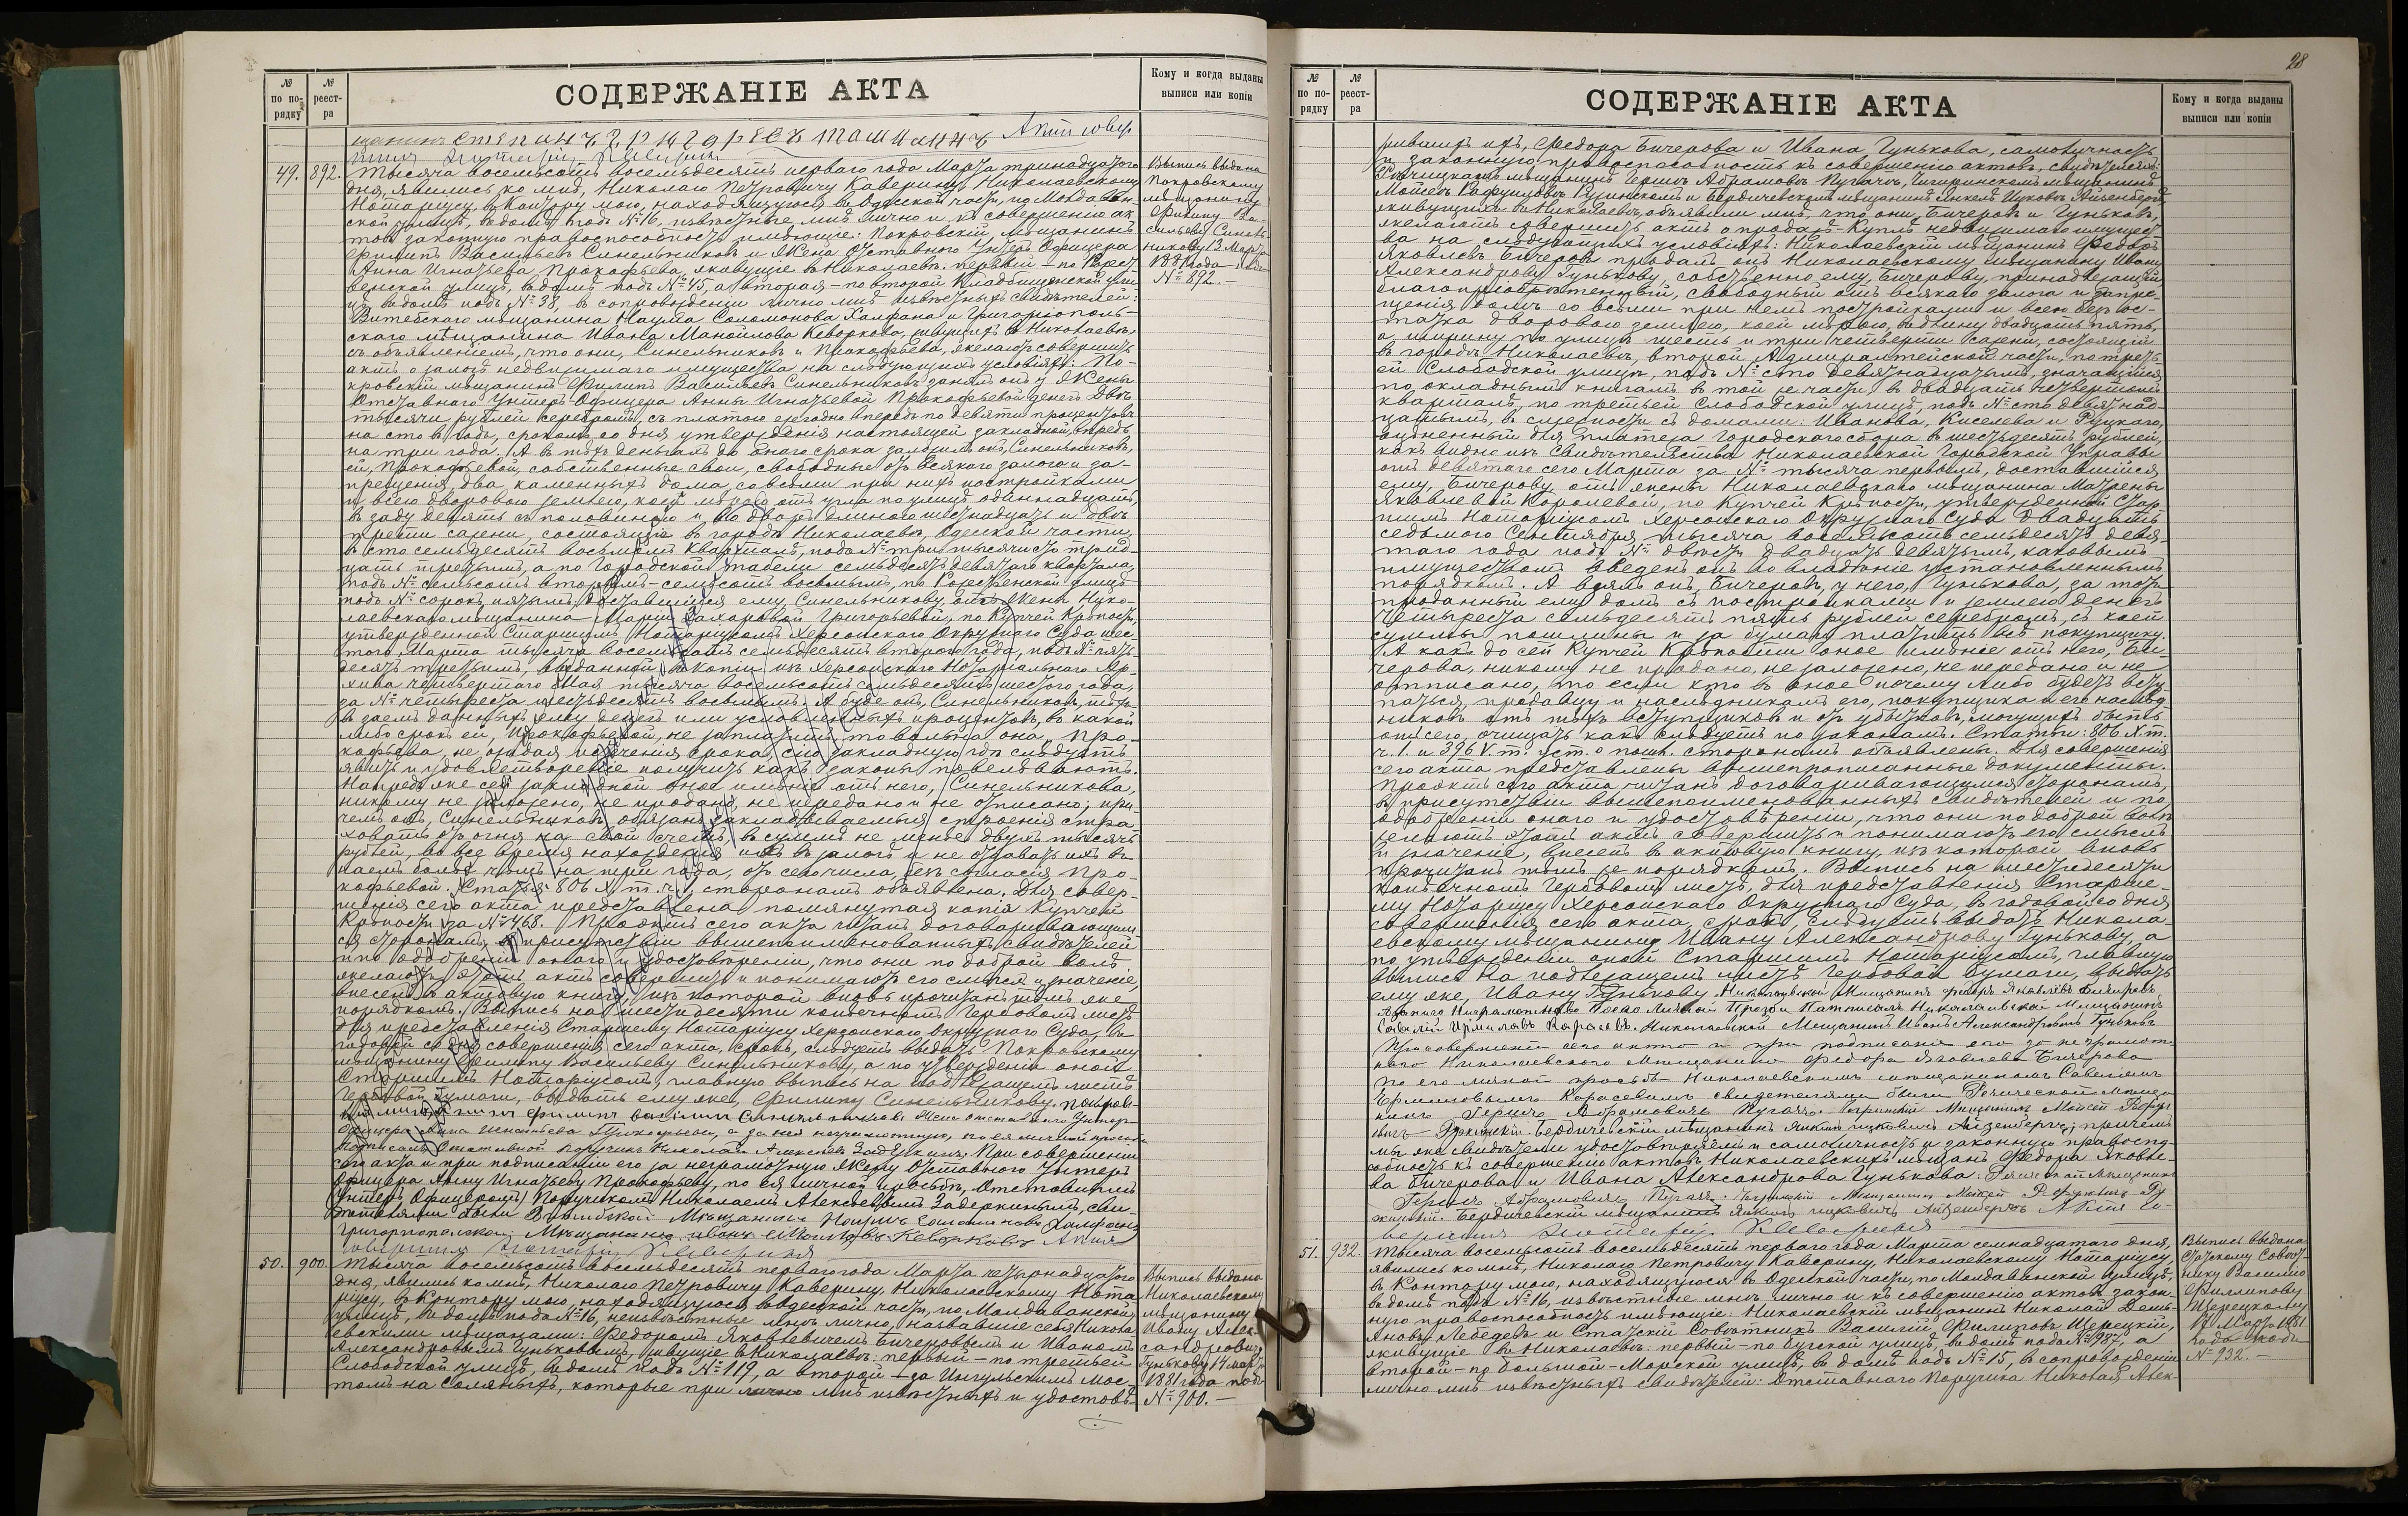 28
№ по по-рядку
№ реест-ра
СОДЕРЖАНІЕ АКТА
Кому и когда выданы выписи или копіи
49.
892.
Тысяча восемьсотъ восемьдесятъ перваго года Марта тринадцатаго
дня, явились ко мнѣ, Николаю Петровичу Каверину, Николаевскому
Нотаріусу, въ Контору мою, находящуюся въ Одесской части, по Молдаван-
ской улицѣ, въ домѣ подъ №16, извѣстные мнѣ лично и къ совершенію ак-
товъ законную правоспособность имѣющіе: Покровскій мѣщанинъ
Филипъ Васильевъ Синельниковъ и Жена Отставного Унтеръ Офицера
Анна Игнатьева Прокофьева, живущіе въ Николаевѣ: первый - по Рожест-
венской улицѣ, въ домѣ подъ №45, а вторая - по второй Кладбищенской ули-
цѣ въ домѣ подъ №38, въ сопровожденіи лично мнѣ извѣстныхъ свидѣтелей:
Витебскаго мѣщанина Наума Соломонова Халфана и Григоріополь-
скаго мѣщанина Ивана Манойлова Кеворкова, живущихъ въ Николаевѣ,
съ объявленіемъ, что они, Синельниковъ и Прокофьева, желаютъ совершить
актъ о залогѣ недвижимаго имущества на слѣдующихъ условіяхъ: По-
кровскій мѣщанинъ Филипъ Васильевъ Синельниковъ занялъ онъ у Жены
Отставнаго Унтеръ-Офицера Анны Игнатьевой Прокофьевой денегъ двѣ
тысячи рублей серебромъ, съ платою ежегодно впередъ по девяти процентовъ
на сто въ годъ, срокомъ со дня утвержденія настоящей закладной, впредь
на три года. А въ тѣхъ деньгахъ до онаго срока заложилъ онъ, Синельниковъ,
ей, Прокофьевой, собственные свои, свободные отъ всякаго залога и за-
прещенія, два каменныхъ дома, со всѣми при нихъ постройками
и всею дворовою землею, коей мѣрою отъ угла по улицѣ одиннадцать,
въ заду девять съ половиною и во дворъ длиною шестнадцать и двѣ
трети сажени, состоящіе въ городѣ Николаевѣ, Одесской части,
въ сто семьдесятъ восьмомъ кварталѣ, подъ № три тысячи сто трид-
цать третьимъ, а по Городской табели семьдесятъ девятаго квартала,
подъ № семьсотъ вторымъ - семьсотъ восьмымъ, по Рожественской улицѣ
подъ № сорокъ пятымъ, доставшіеся ему, Синельникову, отъ Жены Нико-
лаевскаго мѣщанина Маріи Захаровой Григорьевой, по Купчей Крѣпости,
утвержденной Старшимъ Нотаріусомъ Херсонскаго Окружнаго Суда шес-
того Марта тысяча восемьсотъ семьдесятъ втораго года, подъ № пять-
десятъ третьимъ, выданной въ копіи изъ Херсонскаго Нотаріальнаго Ар-
хива четвертаго Мая тысяча восемьсотъ семьдесятъ шестого года,
за № четыреста шестьдесятъ восьмымъ. А буде онъ, Синельниковъ, тѣхъ
въ заемъ данныхъ ему денегъ или условленныхъ процентовъ, въ какой
либо срокъ ей, Прокофьевой, не заплатитъ, то вольна она, Про-
кофьева, не ожидая истеченія срока, сію закладную гдѣ слѣдуетъ
явить и удовлетвореніе получить какъ законы повелѣваютъ.
Напредь же сей закладной оное имѣніе отъ него, Синельникова,
никому не заложено, не продано, не передано и не отписано; при
чемъ онъ, Синельниковъ, обязанъ закладываемыя строенія стра-
ховать отъ огня на свой счетъ, въ суммѣ не менѣе двухъ тысячъ
рублей, во все время нахожденія ихъ въ залогѣ и не отдавать ихъ въ
наемъ болѣе чѣмъ на три года, отъ сего числа, безъ согласія Про-
кофьевой. Статья 806 X т. ч. 1, сторонамъ объявлена. Для совер-
шенія сего акта представлена помянутая копія Купчей
Крѣпости за №468. Проэктъ сего акта читанъ договаривающим-
ся сторонамъ, въ присутствіи вышепоименованныхъ свидѣтелей
и по одобреніи онаго и удостовѣреніи, что они по доброй волѣ
желаютъ этотъ актъ совершить и понимаютъ его смыслъ и значеніе,
внесенъ въ актовую книгу, изъ которой вновь прочитанъ тѣмъ же
порядкомъ. Выпись на шестидесяти копѣечномъ Гербовомъ листѣ
для представленія Старшему Нотаріусу Херсонскаго Окружнаго Суда, въ
годовой со дня совершенія сего акта, срокъ, слѣдуетъ выдать Покровскому
мѣщанину Филипу Васильеву Синельникову, а по утвержденіи оной
Старшимъ Нотаріусомъ, главную выпись на подлежащемъ листѣ
Гербовой бумаги, выдать ему же, Филипу Синельникову. Покров-
Офицера Анна Игнатьева Прокофьева, а за нея неграмотную, по ея личной просьбѣ
Подписалъ Отставной Поручикъ Николай Алексѣевъ Задеркинъ. При совершеніи
сего акта и при подписаніи его за неграмотную Жену Отставного Унтеръ
Офицера Анну Игнатьеву Прокофьеву, по ея личной просьбѣ, Отставнымъ
(Унтеръ Офицеромъ) Поручикомъ Николаемъ Алексѣевымъ Задеркинымъ, сви-
дѣтелями были Витебской Мѣщанинъ Наумъ Соломоновъ Халфанъ
Григоріопольской Мѣщанинъ Иванъ Манойловъ Кеворковъ Актъ
совершилъ Нотаріусъ Каверинъ
Выпись выдана
Покровскому
мѣщанину
Филипу Ва-
сильеву Синель-
никову 13 Марта
1881 года подъ
№ 892. —
50.
900.
Тысяча восемьсотъ восемьдесятъ перваго года Марта четырнадцатаго
дня, явились ко мнѣ, Николаю Петровичу Каверину, Николаевскому Нота-
ріусу, въ Контору мою, находящуюся въ Одесской части, по Молдаванской
улицѣ, въ домѣ подъ №16, неизвѣстные мнѣ лично, назвавшіе себя Никола-
евскими мѣщанами: Федоромъ Яковлевичемъ Бичеровымъ и Иваномъ
Александровымъ Гуньковымъ, живущіе въ Николаевѣ: первый - по третьей
Слободской улицѣ, въ домѣ подъ №119, а второй - за Ингульскимъ мос-
томъ на Соляныхъ, которые при лично мнѣ извѣстныхъ и удостовѣ-
Выпись выдана
Николаевскому
мѣщанину
Ивану Алек-
сандрову
Гунькову 14 марта
1881 года подъ
№ 900. —
№ по по-рядку
№ реест-ра
СОДЕРЖАНІЕ АКТА
Кому и когда выданы выписи или копіи
рившихъ ихъ, Федора Бичерова и Ивана Гунькова, самоличность
и законную правоспособность къ совершенію актовъ, свидѣтеляхъ:
Рѣчицкомъ мѣщанинѣ Гершѣ Абрамовѣ Пугачѣ, Чигиринскомъ мѣщанинѣ
живущихъ въ Николаевѣ, объявили мнѣ, что они, Бичеровъ и Гуньковъ,
желаютъ совершить актъ о продажѣ-Куплѣ недвижимаго имущест-
ва на слѣдующихъ условіяхъ: Николаевскій мѣщанинъ Федоръ
Яковлевъ Бичеровъ продалъ онъ Николаевскому мѣщанину Ивану
Александрову Гунькову, собственно ему, Бичерову, принадлежащій
благопріобрѣтенный, свободный отъ всякаго залога и запре-
щенія домъ со всѣми при немъ постройками и всею безъ ос-
татка дворовою землею, коей мѣрою, въ длину двадцать пять,
а ширину по улицѣ шесть и три четверти сажени, состоящій
въ городѣ Николаевѣ, второй Адмиралтейской части, по треть-
ей Слободской улицѣ, подъ № сто девятнадцатымъ, значащійся
по окладнымъ книгамъ въ той же части въ двадцать четвертомъ
кварталѣ, по третьей Слободской улицѣ, подъ № сто девятнад-
цатымъ, въ смежности съ домами: Иванова, Киселева и Руцкаго,
оцѣненный для платежа Городскаго сбора въ шестьдесятъ рублей,
какъ видно изъ Свидѣтельства Николаевской Городской Управы
отъ девятаго сего Марта за № тысяча первымъ, доставшійся
ему, Бичерову, отъ жены Николаевскаго мѣщанина Матрены
Яковлевой Королевой, по Купчей Крѣпости, утвержденной Стар-
шимъ Нотаріусомъ Херсонскаго Окружнаго Суда двадцать
седьмого Сентября тысяча восемьсотъ семьдесятъ девя-
таго года подъ № двѣсти двадцать девятымъ, каковымъ
имуществомъ введенъ онъ во владѣніе установленнымъ
порядкомъ. А взялъ онъ, Бичеровъ, у него, Гунькова, за тотъ
проданный ему домъ съ постройками и землею денегъ
Четыреста семьдесятъ пять рублей серебромъ, съ коей
суммы пошлины и за бумагу платитъ все покупщикъ.
А какъ до сей Купчей Крѣпости оное имѣніе отъ него, Би-
черова, никому не продано, не заложено, не передано и не
отписано, то если кто въ оное почему либо будетъ всту-
паться, продавцу и наслѣдникамъ его, покупщика и его наслѣд-
никовъ отъ тѣхъ вступщиковъ и отъ убытковъ, могущихъ быть
отъ сего, очищать какъ слѣдуетъ по законамъ. Статьи: 806 X т.
ч. 1 и 396 V т. уст. о пошл. сторонамъ объявлены. Для совершенія
сего акта представлены вышепрописанные документы.
Проэктъ сего акта читанъ договаривающимся сторонамъ,
въ присутствіи вышепоименованныхъ свидѣтелей и по
одобреніи онаго и удостовѣреніи, что они по доброй волѣ
желаютъ этотъ актъ совершить и понимаютъ его смыслъ
и значеніе, внесенъ въ актовую книгу, изъ которой вновь
прочитанъ тѣмъ же порядкомъ. Выпись на шестидесяти
копѣечномъ Гербовомъ листѣ, для представленія Старше-
му Нотаріусу Херсонскаго Окружнаго Суда, въ годовой со дня
совершенія сего акта, срокъ, слѣдуетъ выдать Никола-
евскому мѣщанину Ивану Александрову Гунькову, а
по утвержденіи оной Старшимъ Нотаріусомъ, главную
выпись на подлежащемъ листѣ Гербовой бумаги, выдать
ему же, Ивану Гунькову. Николаевской Мещанинъ Федоръ Яковлевъ Бичеровъ
Николаевской Мещанинъ Иванъ Александровъ Гуньковъ
При совершеніи сего акта и при подписаніи его за неграмот-
наго Николаевскаго Мещанина Федора Яковлева Бичерова
по его личной просьбѣ Николаевскимъ мещаниномъ Савеліемъ
Ермиловымъ Карасевымъ свидетелями были Речицской Меща-
нинъ Гершъ Абрамовичъ Пугачъ.
Бердичевскій мѣщанинъ Янкель Ицковичъ Айзенбергъ; причемъ
мы же свидѣтели удостовѣряемъ самоличность и законную правоспо-
собность къ совершенію актовъ Николаевскихъ мѣщанъ Федора Яковле-
ва Бичерова и Ивана Александрова Гунькова: Речицской Мещанинъ
Гершъ Абрамовичъ Пугачъ.
Бердичевскій мѣщанинъ Янкель Ицковичъ Айзенбергъ Актъ со-
вершилъ Нотаріусъ Каверинъ
51.
932.
Тысяча восемьсотъ восемьдесятъ перваго года Марта семнадцатаго дня,
явились ко мнѣ, Николаю Петровичу Каверину, Николаевскому Нотаріусу,
въ Контору мою, находящуюся въ Одесской части, по Молдаванской улицѣ,
въ домѣ подъ №16, извѣстные мнѣ лично и къ совершенію актовъ закон-
ную правоспособность имѣющіе: Николаевскій мѣщанинъ Николай Демь-
яновъ Лебедевъ и Статскій Совѣтникъ Василій Филиповъ Щерецкій,
живущіе въ Николаевѣ: первый - по Бугской улицѣ, въ домѣ подъ №987, а
второй - по Большой-Морской улицѣ, въ домѣ подъ №15, въ сопровожденіи
лично мнѣ извѣстныхъ свидѣтелей: Отставнаго Поручика Николая Алек-
Выпись выдана
Статскому Совѣт-
нику Василію
Филипову
Щерецкому
17 Марта 1881
года подъ
№ 932. —